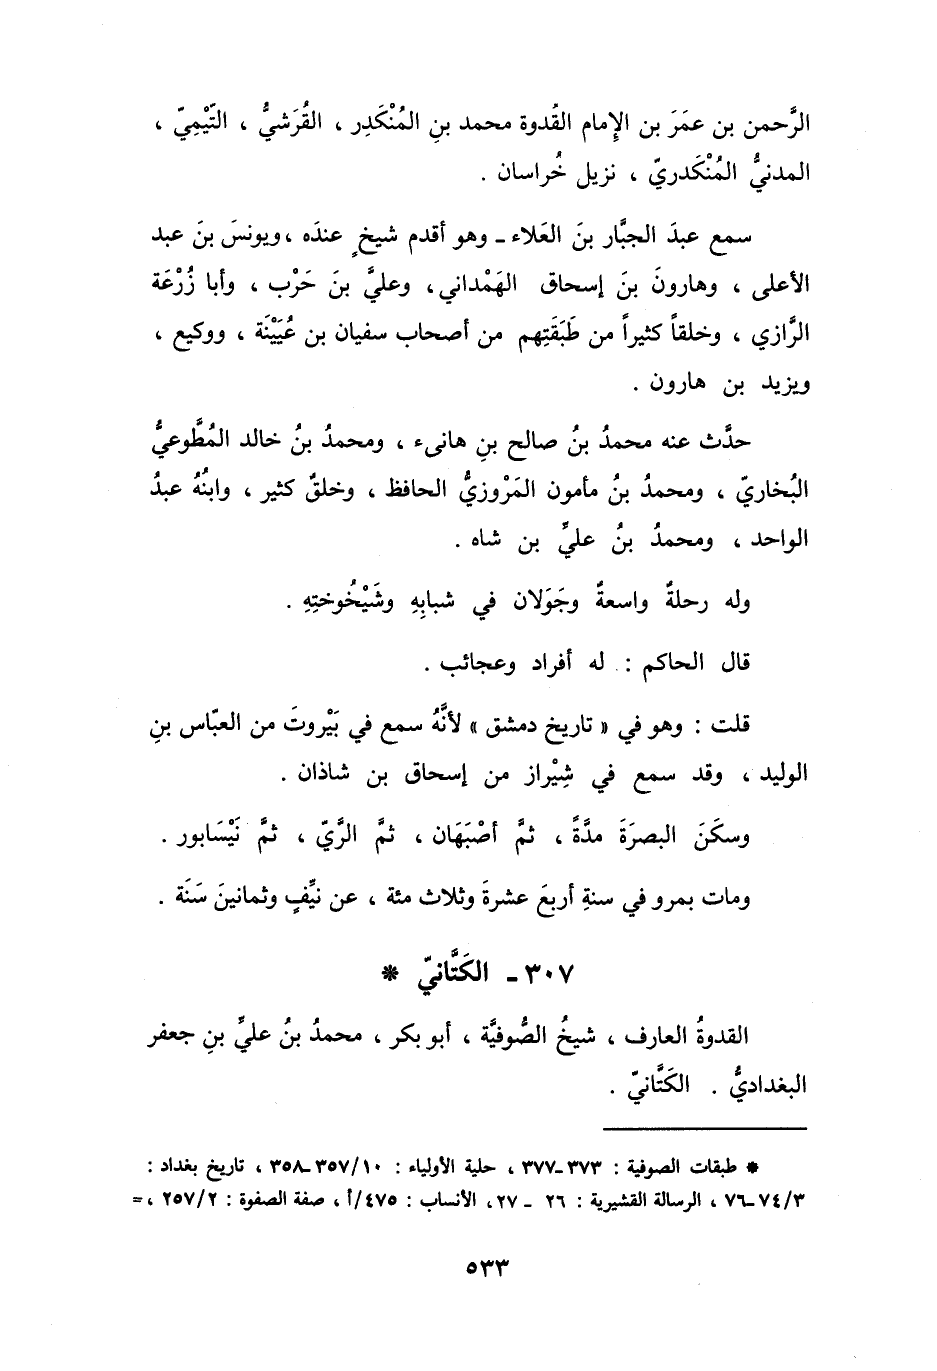 الرَّحمن بن عمَرَ بن الإِمام القُدوة محمد بنِ المُنْكَدِر ، القُرَشيُّ ، التَّيْمِيّ ،
المدنيُّ المُنْكَدريّ ، نزيل خُراسان .
سمع عبدَ الجبَّار بنَ العَلاء ـ وهو أقدم شيخٍ عندَه ، ويونسَ بنَ عبد
الأعلى ، وهارونَ بنَ إسحاق الهَمْداني، وعليَّ بنَ حَرْب ، وأبا زُرْعَة
الرَّازي ، وخلقاً كثيراً من طَبَقَتِهم من أصحاب سفيان بن عُيَيْنَة ، ووكيع ،
ويزيد بن هارون .
حدَّث عنه محمدُ بنُ صالح بنِ هانىء ، ومحمدُ بنُ خالد المُطَّوعيُّ
البُخاريّ ، ومحمدُ بنُ مأمون المَرْوزيُّ الحافظ ، وخلقٌ كثير ، وابنُهُ عبدُ
الواحد ، ومحمدُ بنُ عليِّ بن شاه .
وله رحلةٌ واسعةٌ وجَوَلان في شبابِهِ وشَيْخُوختِهِ .
قال الحاكم : له أفراد وعجائب .
قلت : وهو في « تاريخ دمشق » لأنَّهُ سمع في بَيْروتَ من العبّاس بنِ
الوليد ، وقد سمع في شِيْراز من إسحاق بن شاذان .
وسكَنَ البصرَةَ مدَّةً ، ثمَّ أصْبَهَان ، ثمَّ الرَّيّ ، ثمَّ نَيْسَابور .
ومات بمرو في سنةِ أربعَ عشرةَ وثلاث مئة ، عن نيِّفٍ وثمانينَ سَنَة .
٣٠٧ ـ الكَتَّانيّ *
القدوةُ العارف ، شيخُ الصُّوفيَّة ، أبو بكر ، محمدُ بنُ عليِّ بنِ جعفر
البغداديُّ . الكَتَّانيّ .
* طبقات الصوفية : ٣٧٣ـ٣٧٧ ، حلية الأولياء : ٣٥٧/١٠ـ٣٥٨ ، تاريخ بغداد :
٧٤/٣ـ٧٦ ، الرسالة القشيرية : ٢٦ ـ ٢٧، الأنساب : ٤٧٥/أ ، صفة الصفوة : ٢٥٧/٢ ،=
٥٣٣